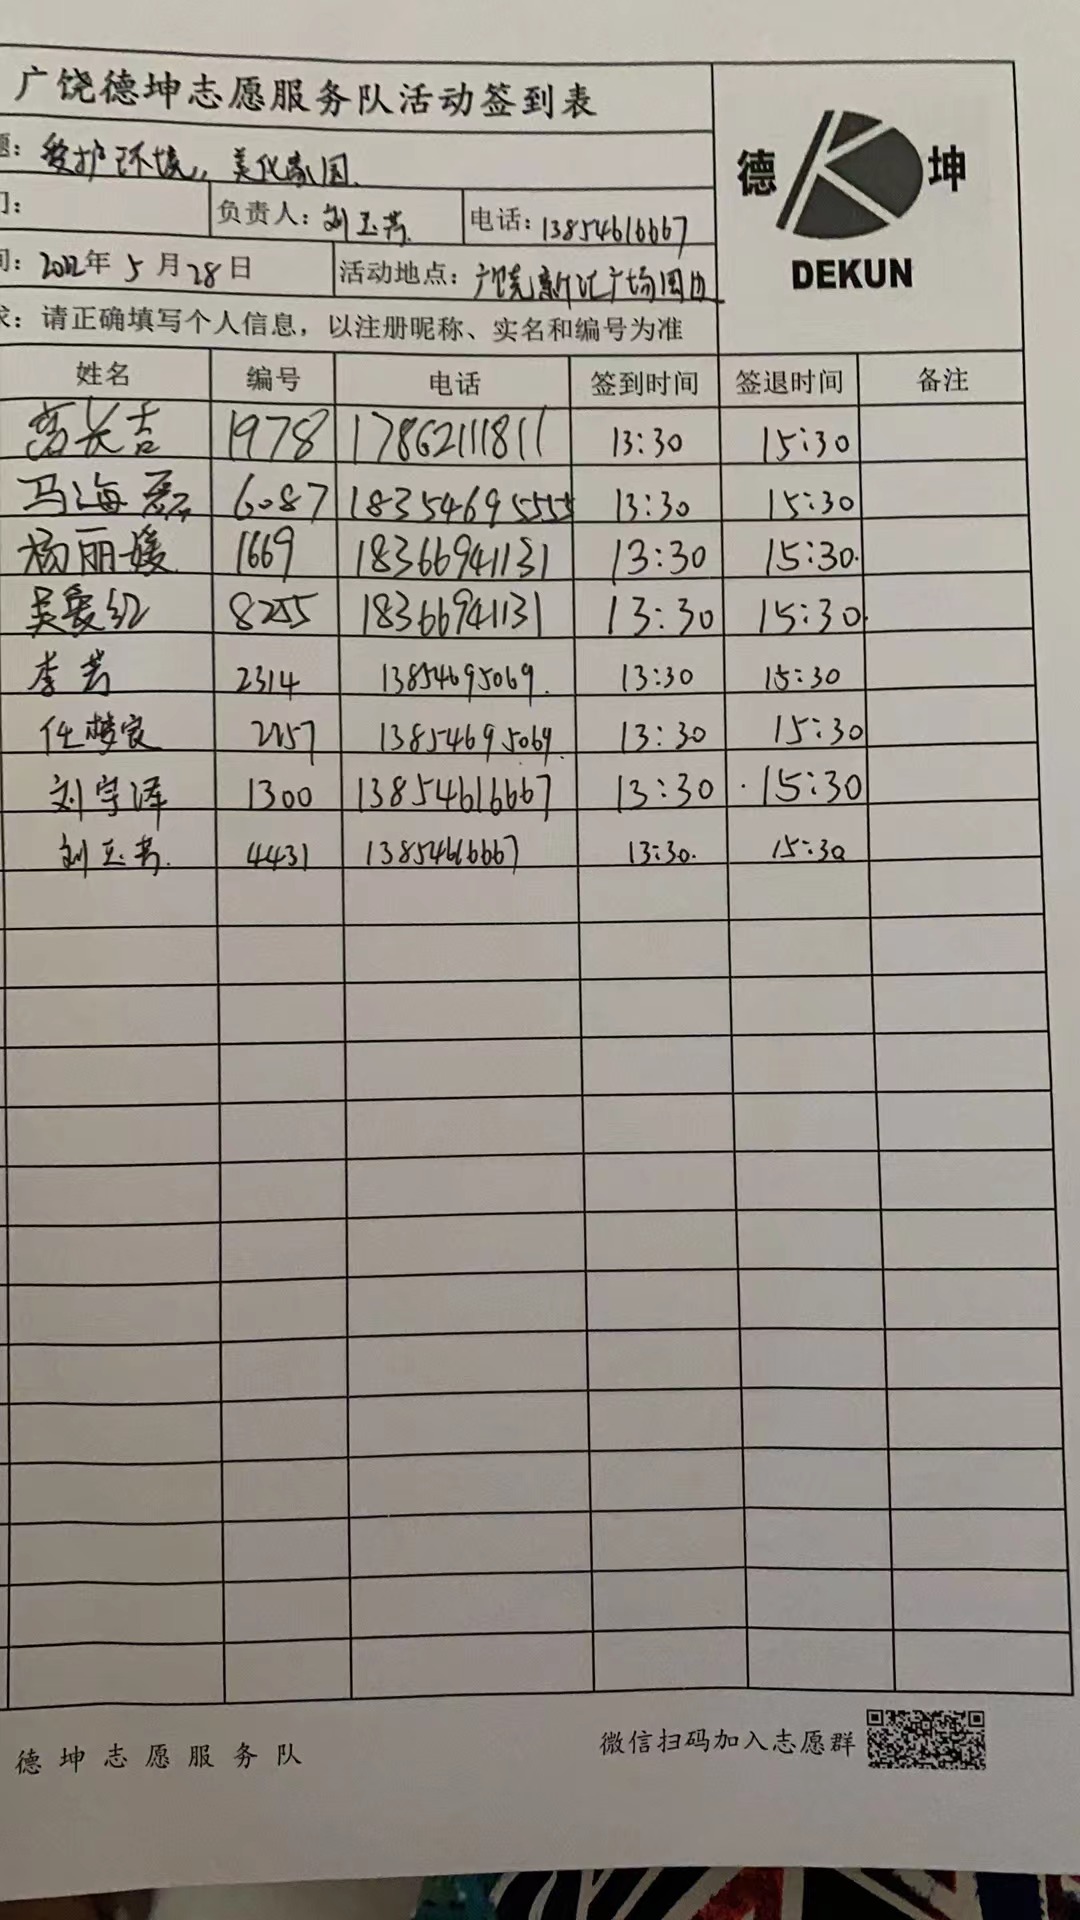 广饶德坤志愿服务队活动签到表
德 坤
DEKUN
题：爱护环境，美化家园.
门：
负责人：刘玉芳
电话：13854616667
间：2022年5月28日
活动地点：广饶新汇广场周边
求：请正确填写个人信息，以注册昵称、实名和编号为准
姓名 编号 电话 签到时间 签退时间 备注
长吉 1978 17862111811 13:30 15:30
马海磊 6087 18354695555 13:30 15:30
杨丽媛 1669 18366941131 13:30 15:30.
吴爱红 8255 18366941131 13:30 15:30.
李芳 2314 13854695069. 13:30 15:30
任梦宸 2257 13854695069. 13:30 15:30
刘宇泽 1300 13854616667 13:30 15:30
刘玉芳. 4431 13854616667 13:30. 15:30
德坤志愿服务队
微信扫码加入志愿群